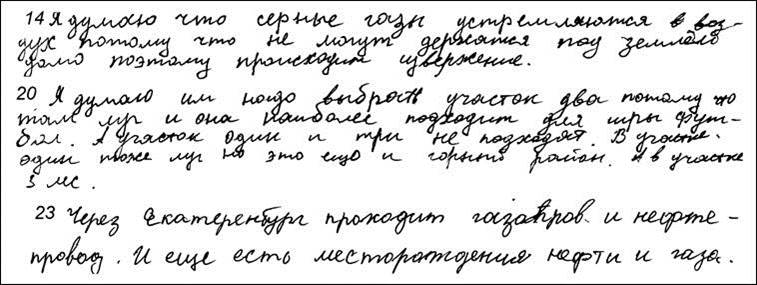 14 Я думаю что серные газы устремляются в воз-
дух потому что не могут держатся под землёю
дамо поэтому происходит извержение.
20 Я думаю им надо выброть участок два потому что
там луг и она наиболее подходит для игры фут-
бол. А участок один и три не подходят. В участке.
один тоже луг но это ещо и горный район. А в участке
3 лес.
23 Через Екатеренбург проходит газапров. и нефте-
провод. И еще есть месторождения нефти и газа.